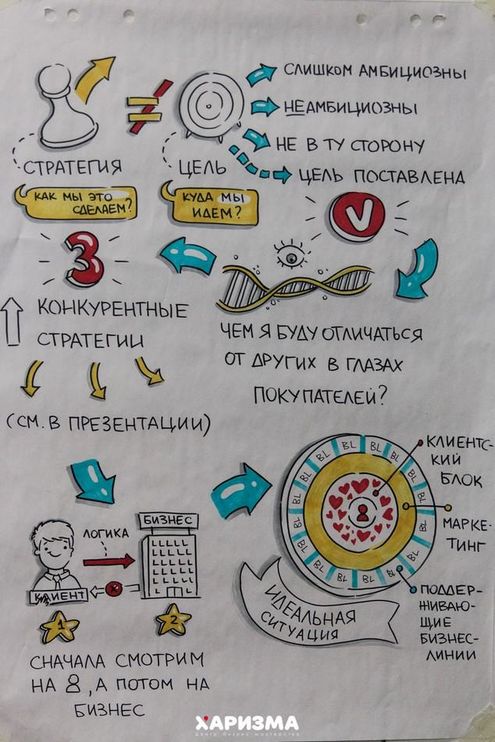 СЛИШКОМ АМБИЦИОЗНЫ
НЕАМБИЦИОЗНЫ
НЕ В ТУ СТОРОНУ
ЦЕЛЬ ПОСТАВЛЕНА
СТРАТЕГИЯ
≠
ЦЕЛЬ
КАК МЫ ЭТО
СДЕЛАЕМ?
КУДА МЫ
ИДЕМ?
V
3
КОНКУРЕНТНЫЕ
СТРАТЕГИИ
(СМ. В ПРЕЗЕНТАЦИИ)
ЧЕМ Я БУДУ ОТЛИЧАТЬСЯ
ОТ ДРУГИХ В ГЛАЗАХ
ПОКУПАТЕЛЕЙ?
ЛОГИКА
БИЗНЕС
КЛИЕНТ
1
2
СНАЧАЛА СМОТРИМ
НА , А ПОТОМ НА
БИЗНЕС
BL BL BL BL BL BL BL BL BL BL BL BL BL BL
КЛИЕНТС-
КИЙ
БЛОК
МАРКЕ-
ТИНГ
ПОДДЕР-
ЖИВАЮ-
ЩИЕ
БИЗНЕС-
ЛИНИИ
ИДЕАЛЬНАЯ
СИТУАЦИЯ
ХАРИЗМА